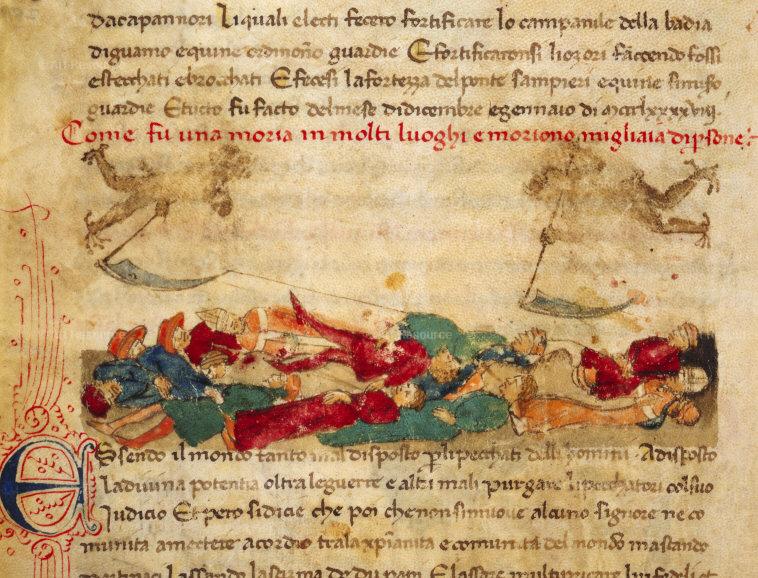 dacapannori Liquali electi fecero fortificare lo campanile della badia
diguamo equine ordinono guardie Efortificaronsi liozori faccendo fossi
estecchati ebrocchati Efecesi lafortezza delponte sampieri equine simiso
guardie Etucto fu facto delmese didicembre egennaio di mcclxxxxviiij.
Come fu una moria in molti luoghi e moriono migliaia dipsone:
Essendo il mondo tanto mal disposto p lipecchati delli homini Adisposto
Ladivina potentia oltra leguerre e altri mali purgare lipecchatori colsuo
Judicio Et pero sidicie che poi chenonsimuove alcuno signore ne co
munita amectere acordio tralaxpianita ecomunita del mondo